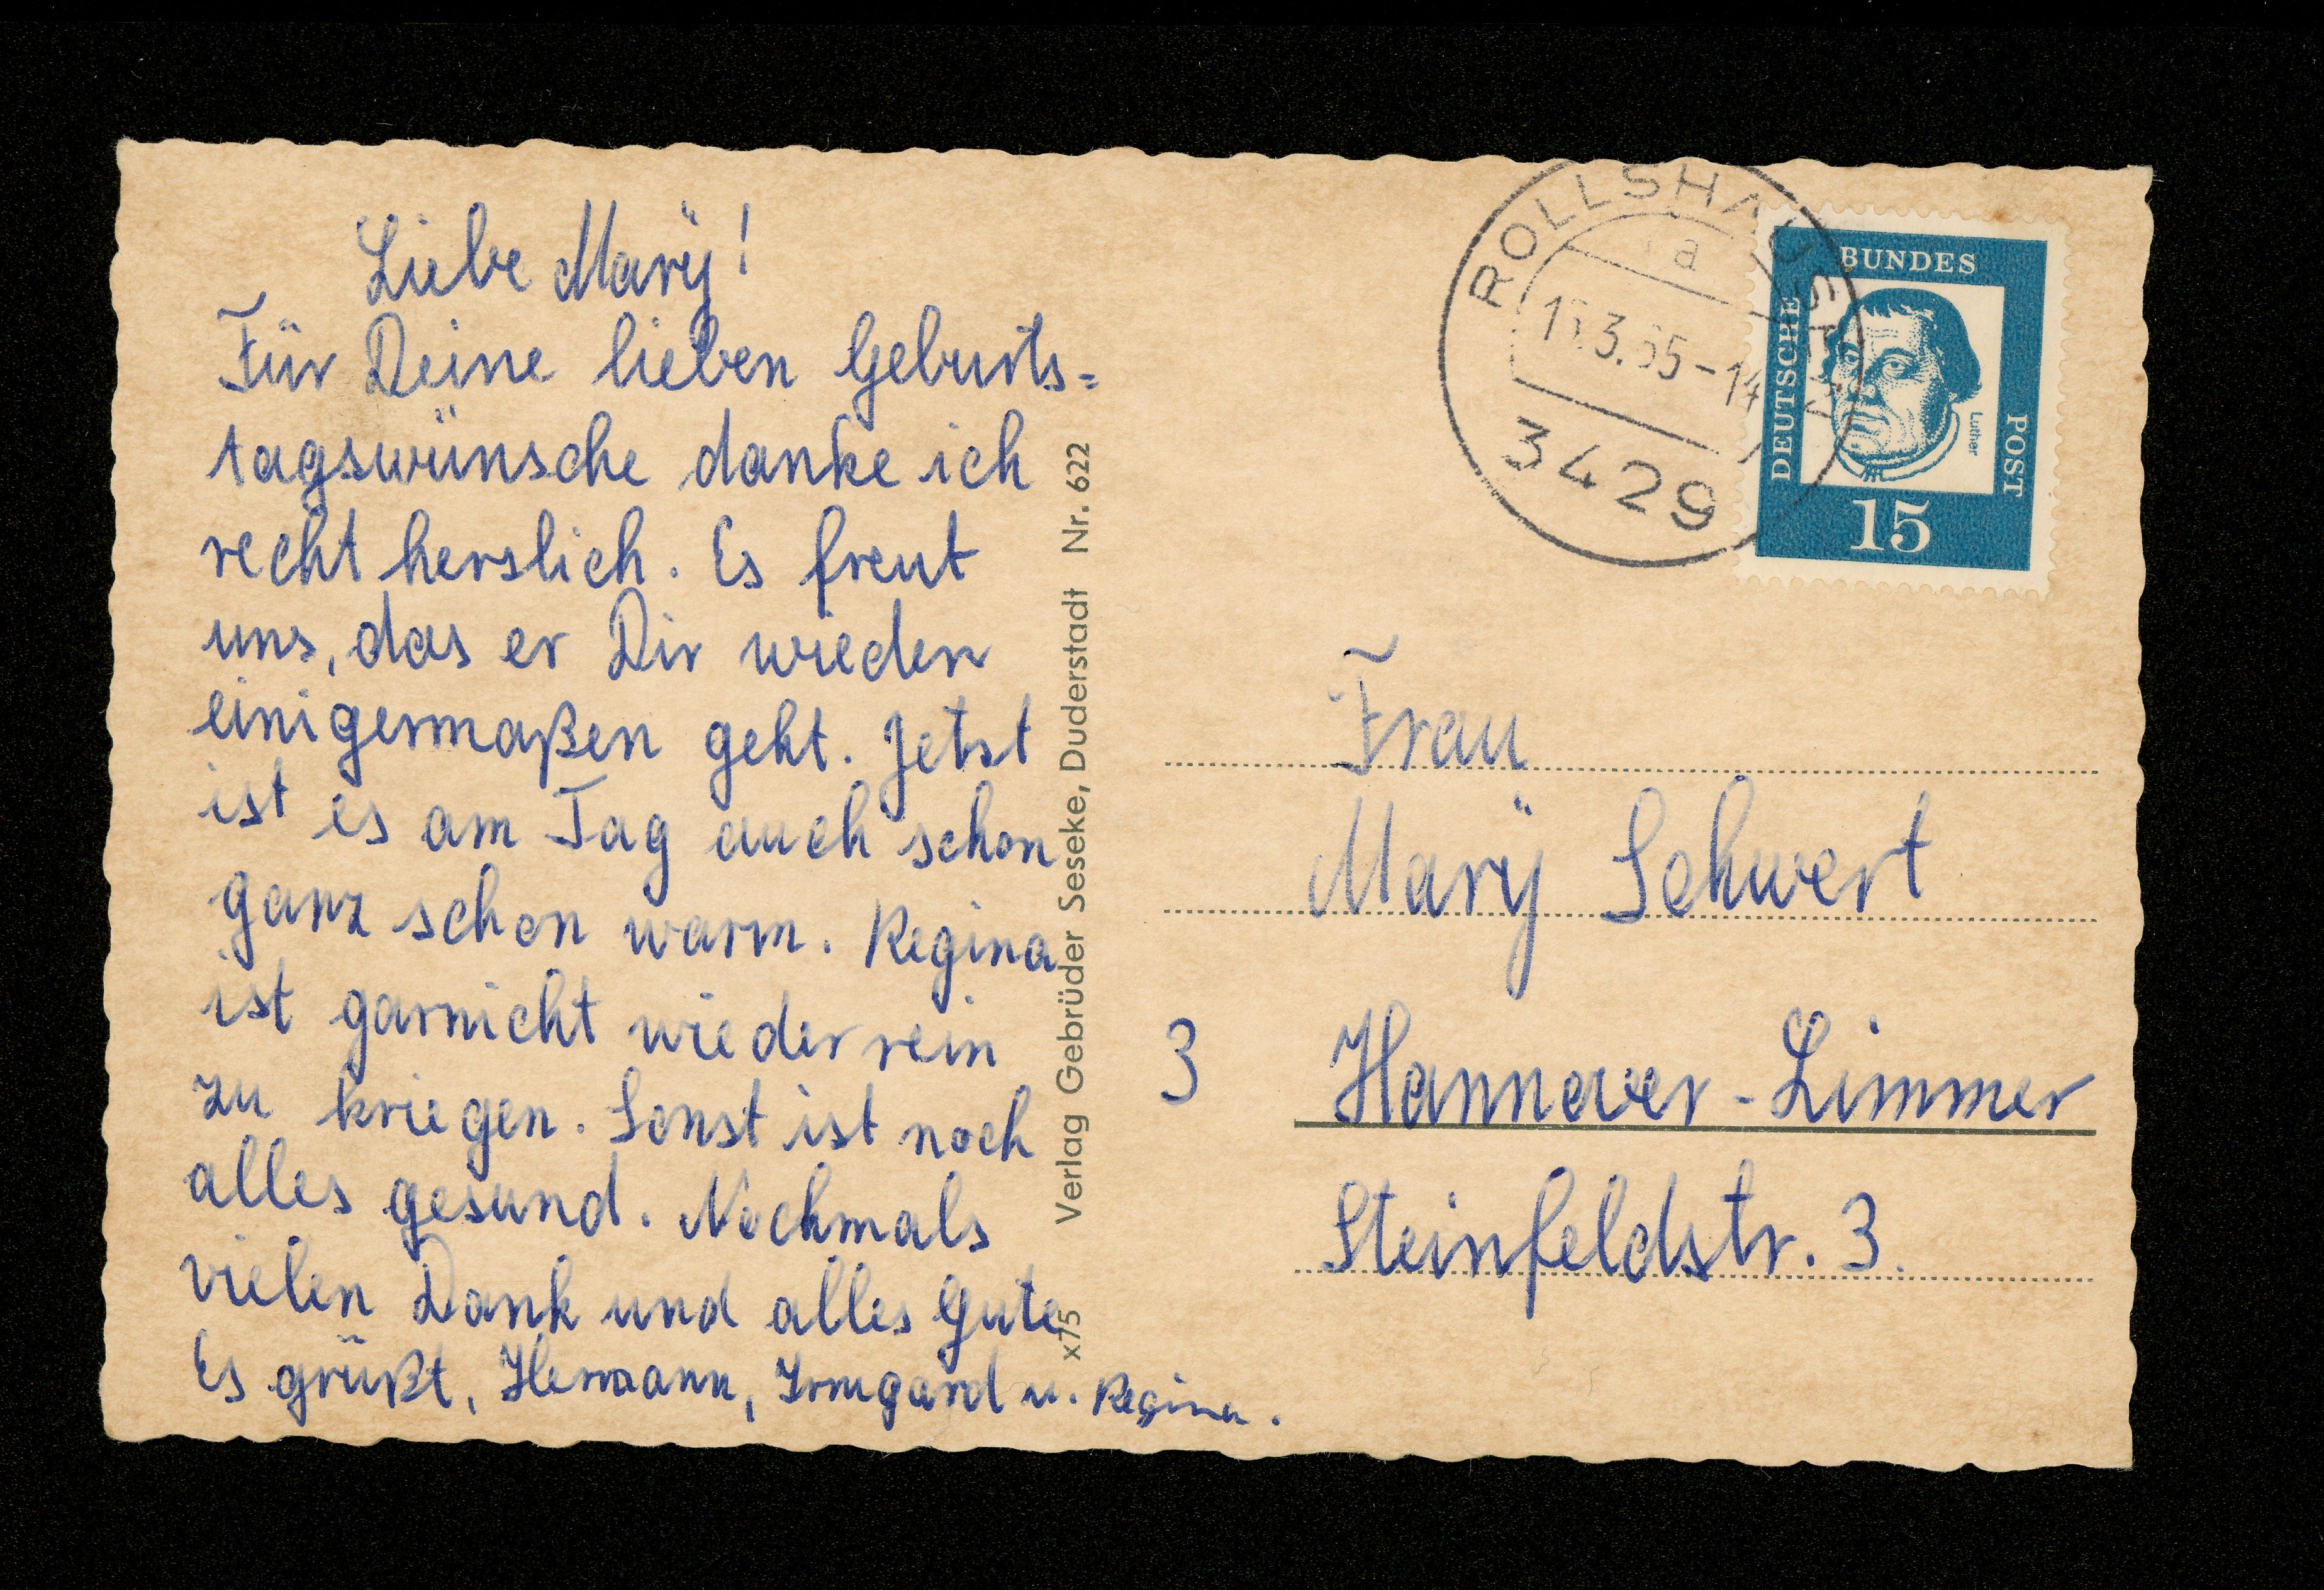 Liebe Marÿ!
Für Deine lieben Geburts=
tagswünsche danke ich
recht herslich. Es freut
uns, das er Dir wieder
einigermaßen geht. Jetst
ist es am Tag auch schon
ganz schon warm. Regina
ist garnicht wieder rein
zu kriegen. Sonst ist noch
alles gesund. Nochmals
vielen Dank und alles Gute
Es grüßt, Hermann, Irmgard u. Regina.
Verlag Gebrüder Seseke, Duderstadt Nr. 622
x75
ROLLSHAUSEN
a
.3.65-14
3429
DEUTSCHE
BUNDES
POST
Luther
15
Frau
Marÿ Schwert
3 Hannover-Limmer
Steinfeldstr. 3.